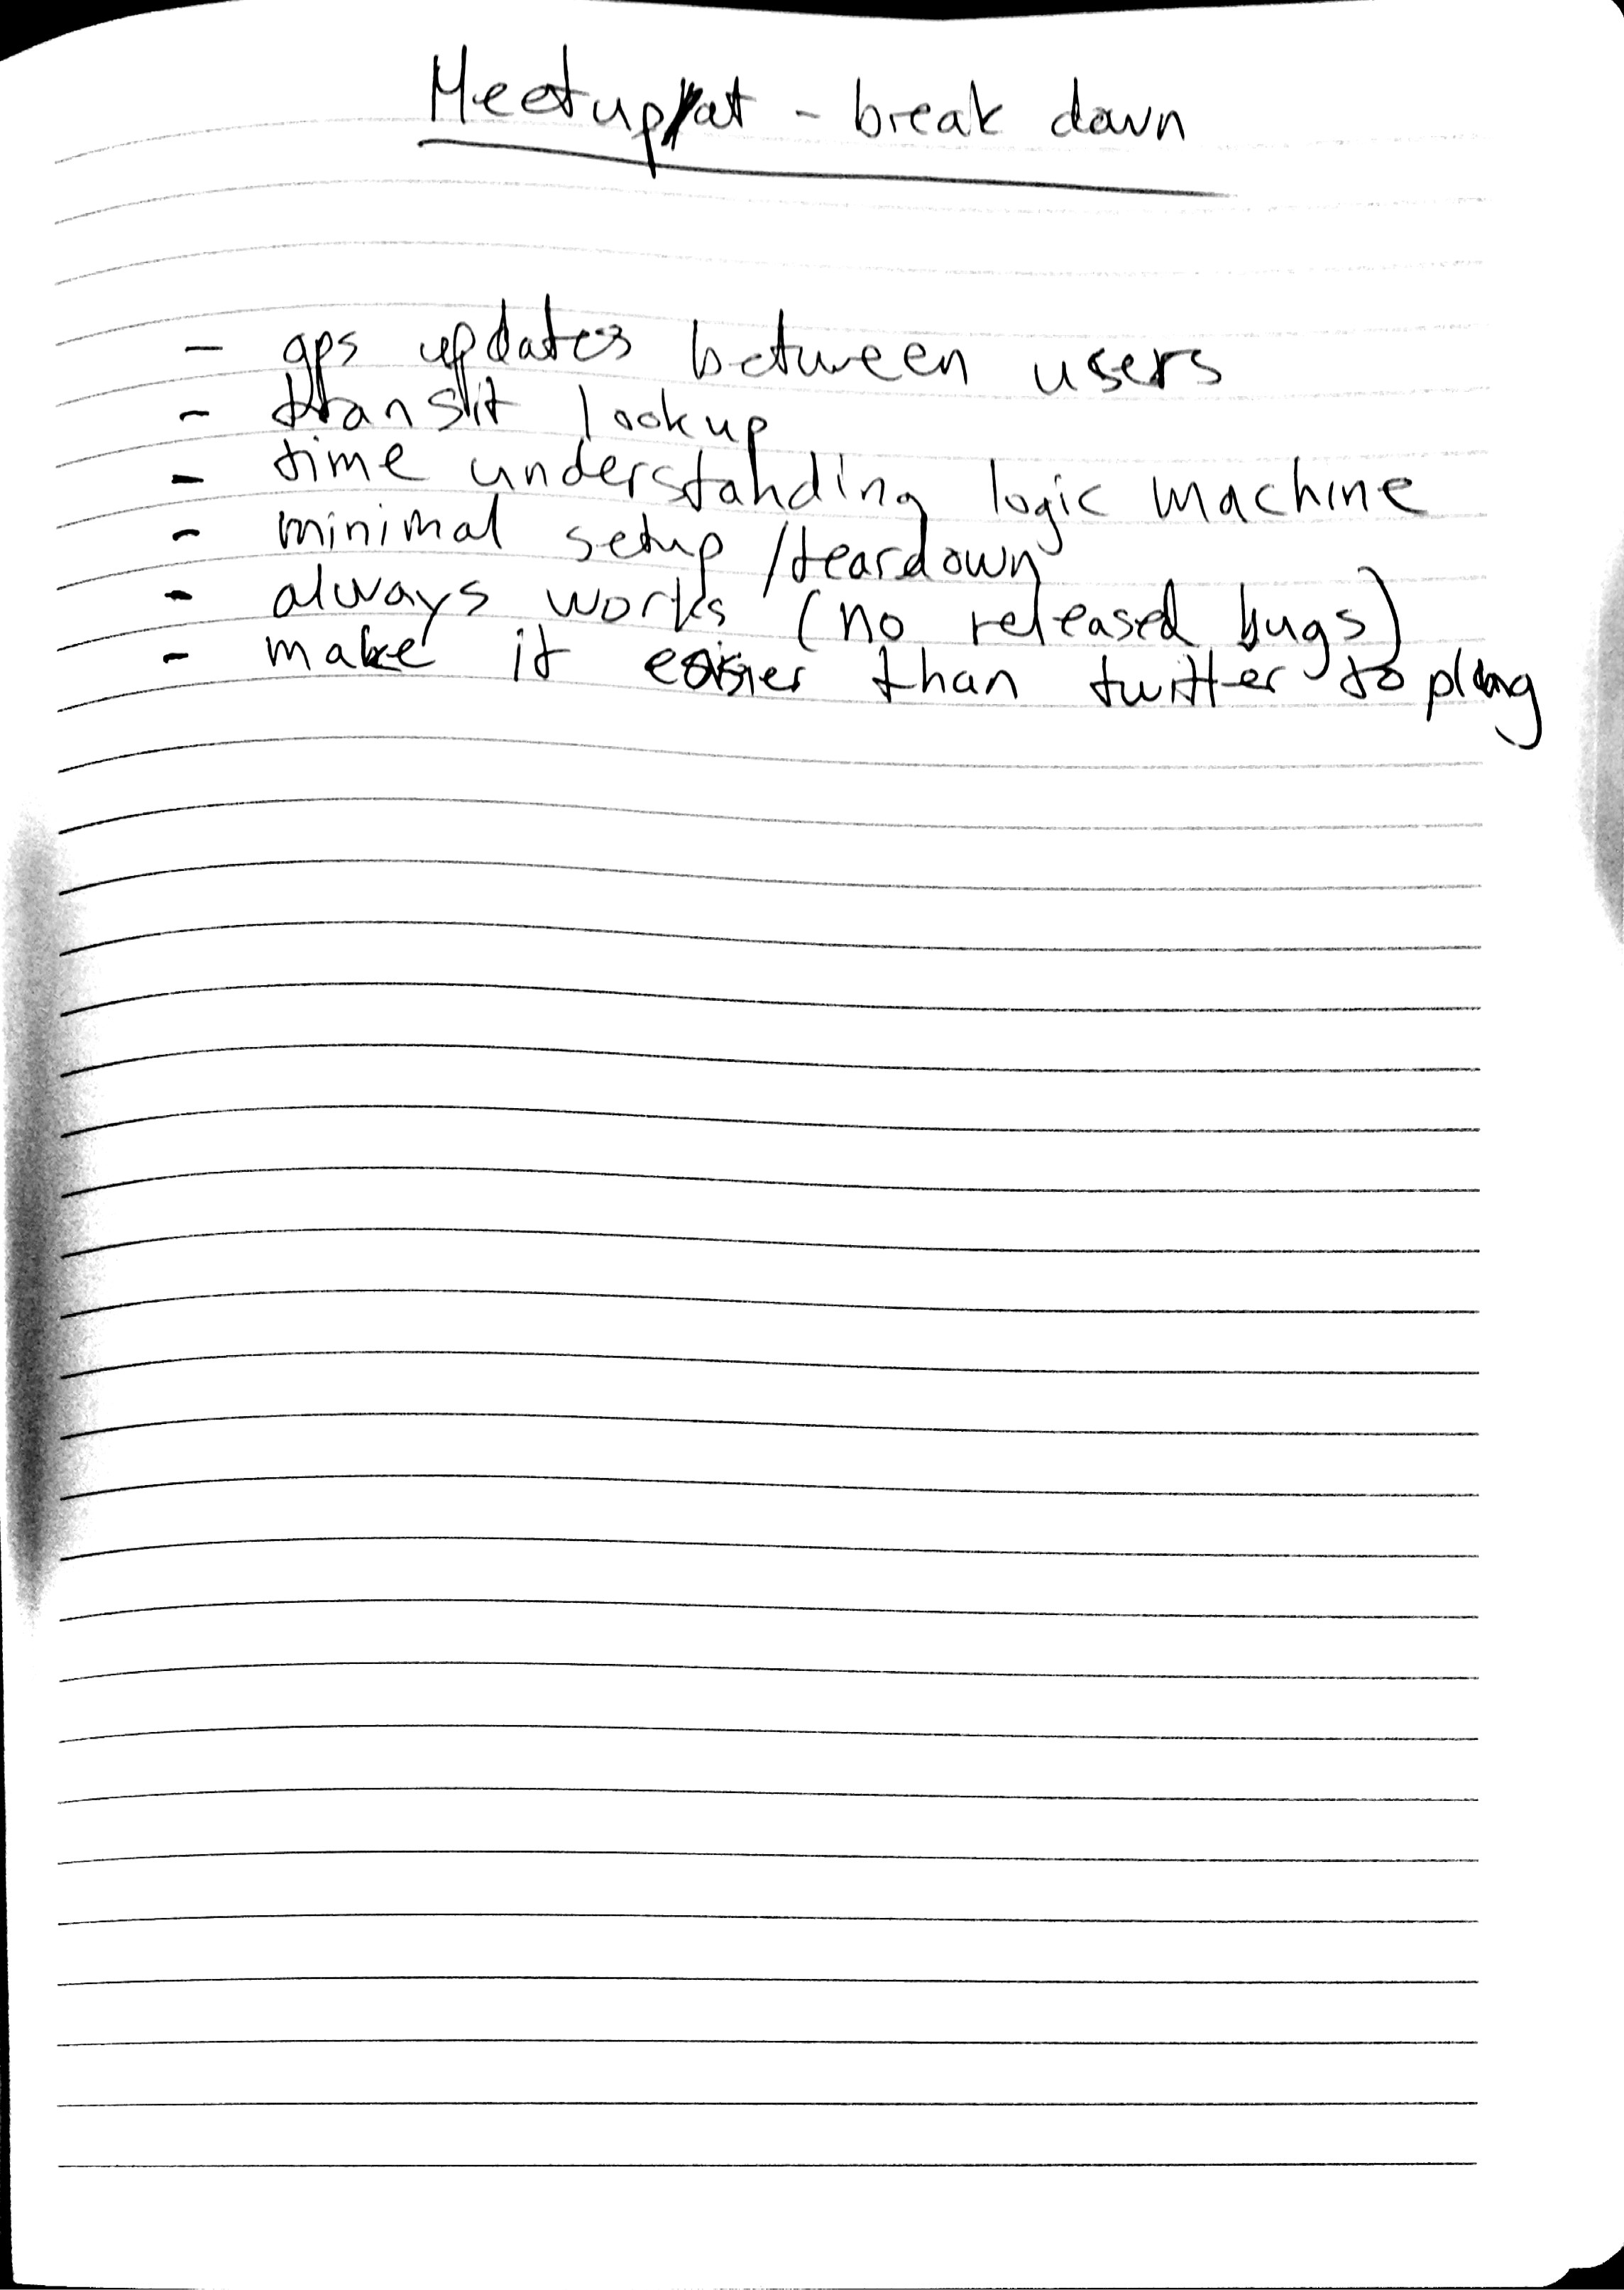 Meetup at - break down
- gps updates between users
- transit lookup
- time understanding logic machine
- minimal setup / teardown
- always works (no released bugs)
- make it easier than twitter to